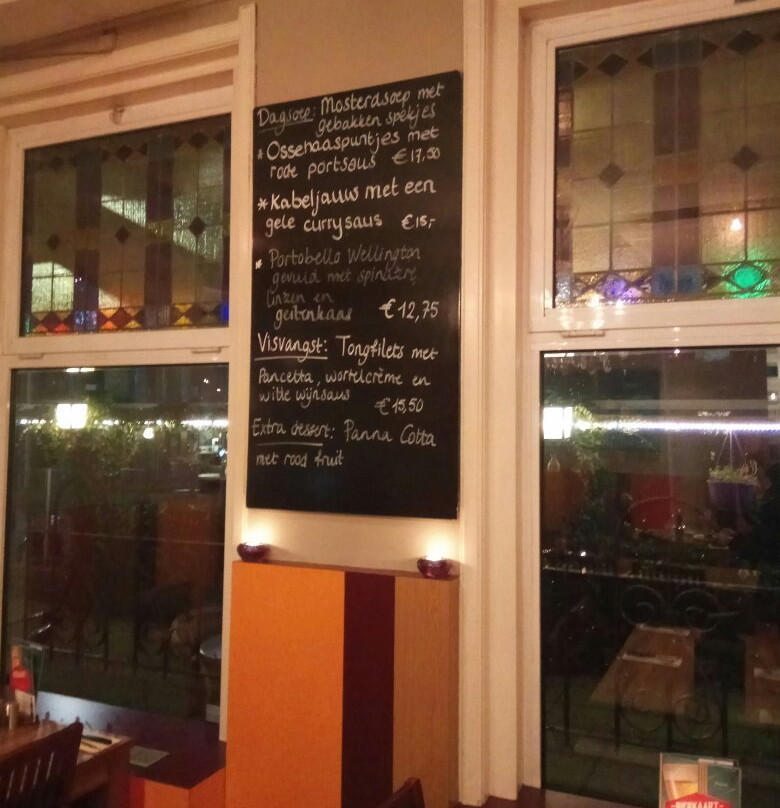 Dagsoep: Mosterdsoep met
gebakken spekjes
* Ossehaaspuntjes met
rode portsaus €17,50
* Kabeljauw met een
gele currysaus €15,-
* Portobello Wellington
gevuld met spinazie,
linzen en
geitenkaas €12,75
Visvangst: Tongfilets met
Pancetta, wortelcrème en
witte wijnsaus
€15,50
Extra dessert: Panna Cotta
met rood fruit
BIERKAART